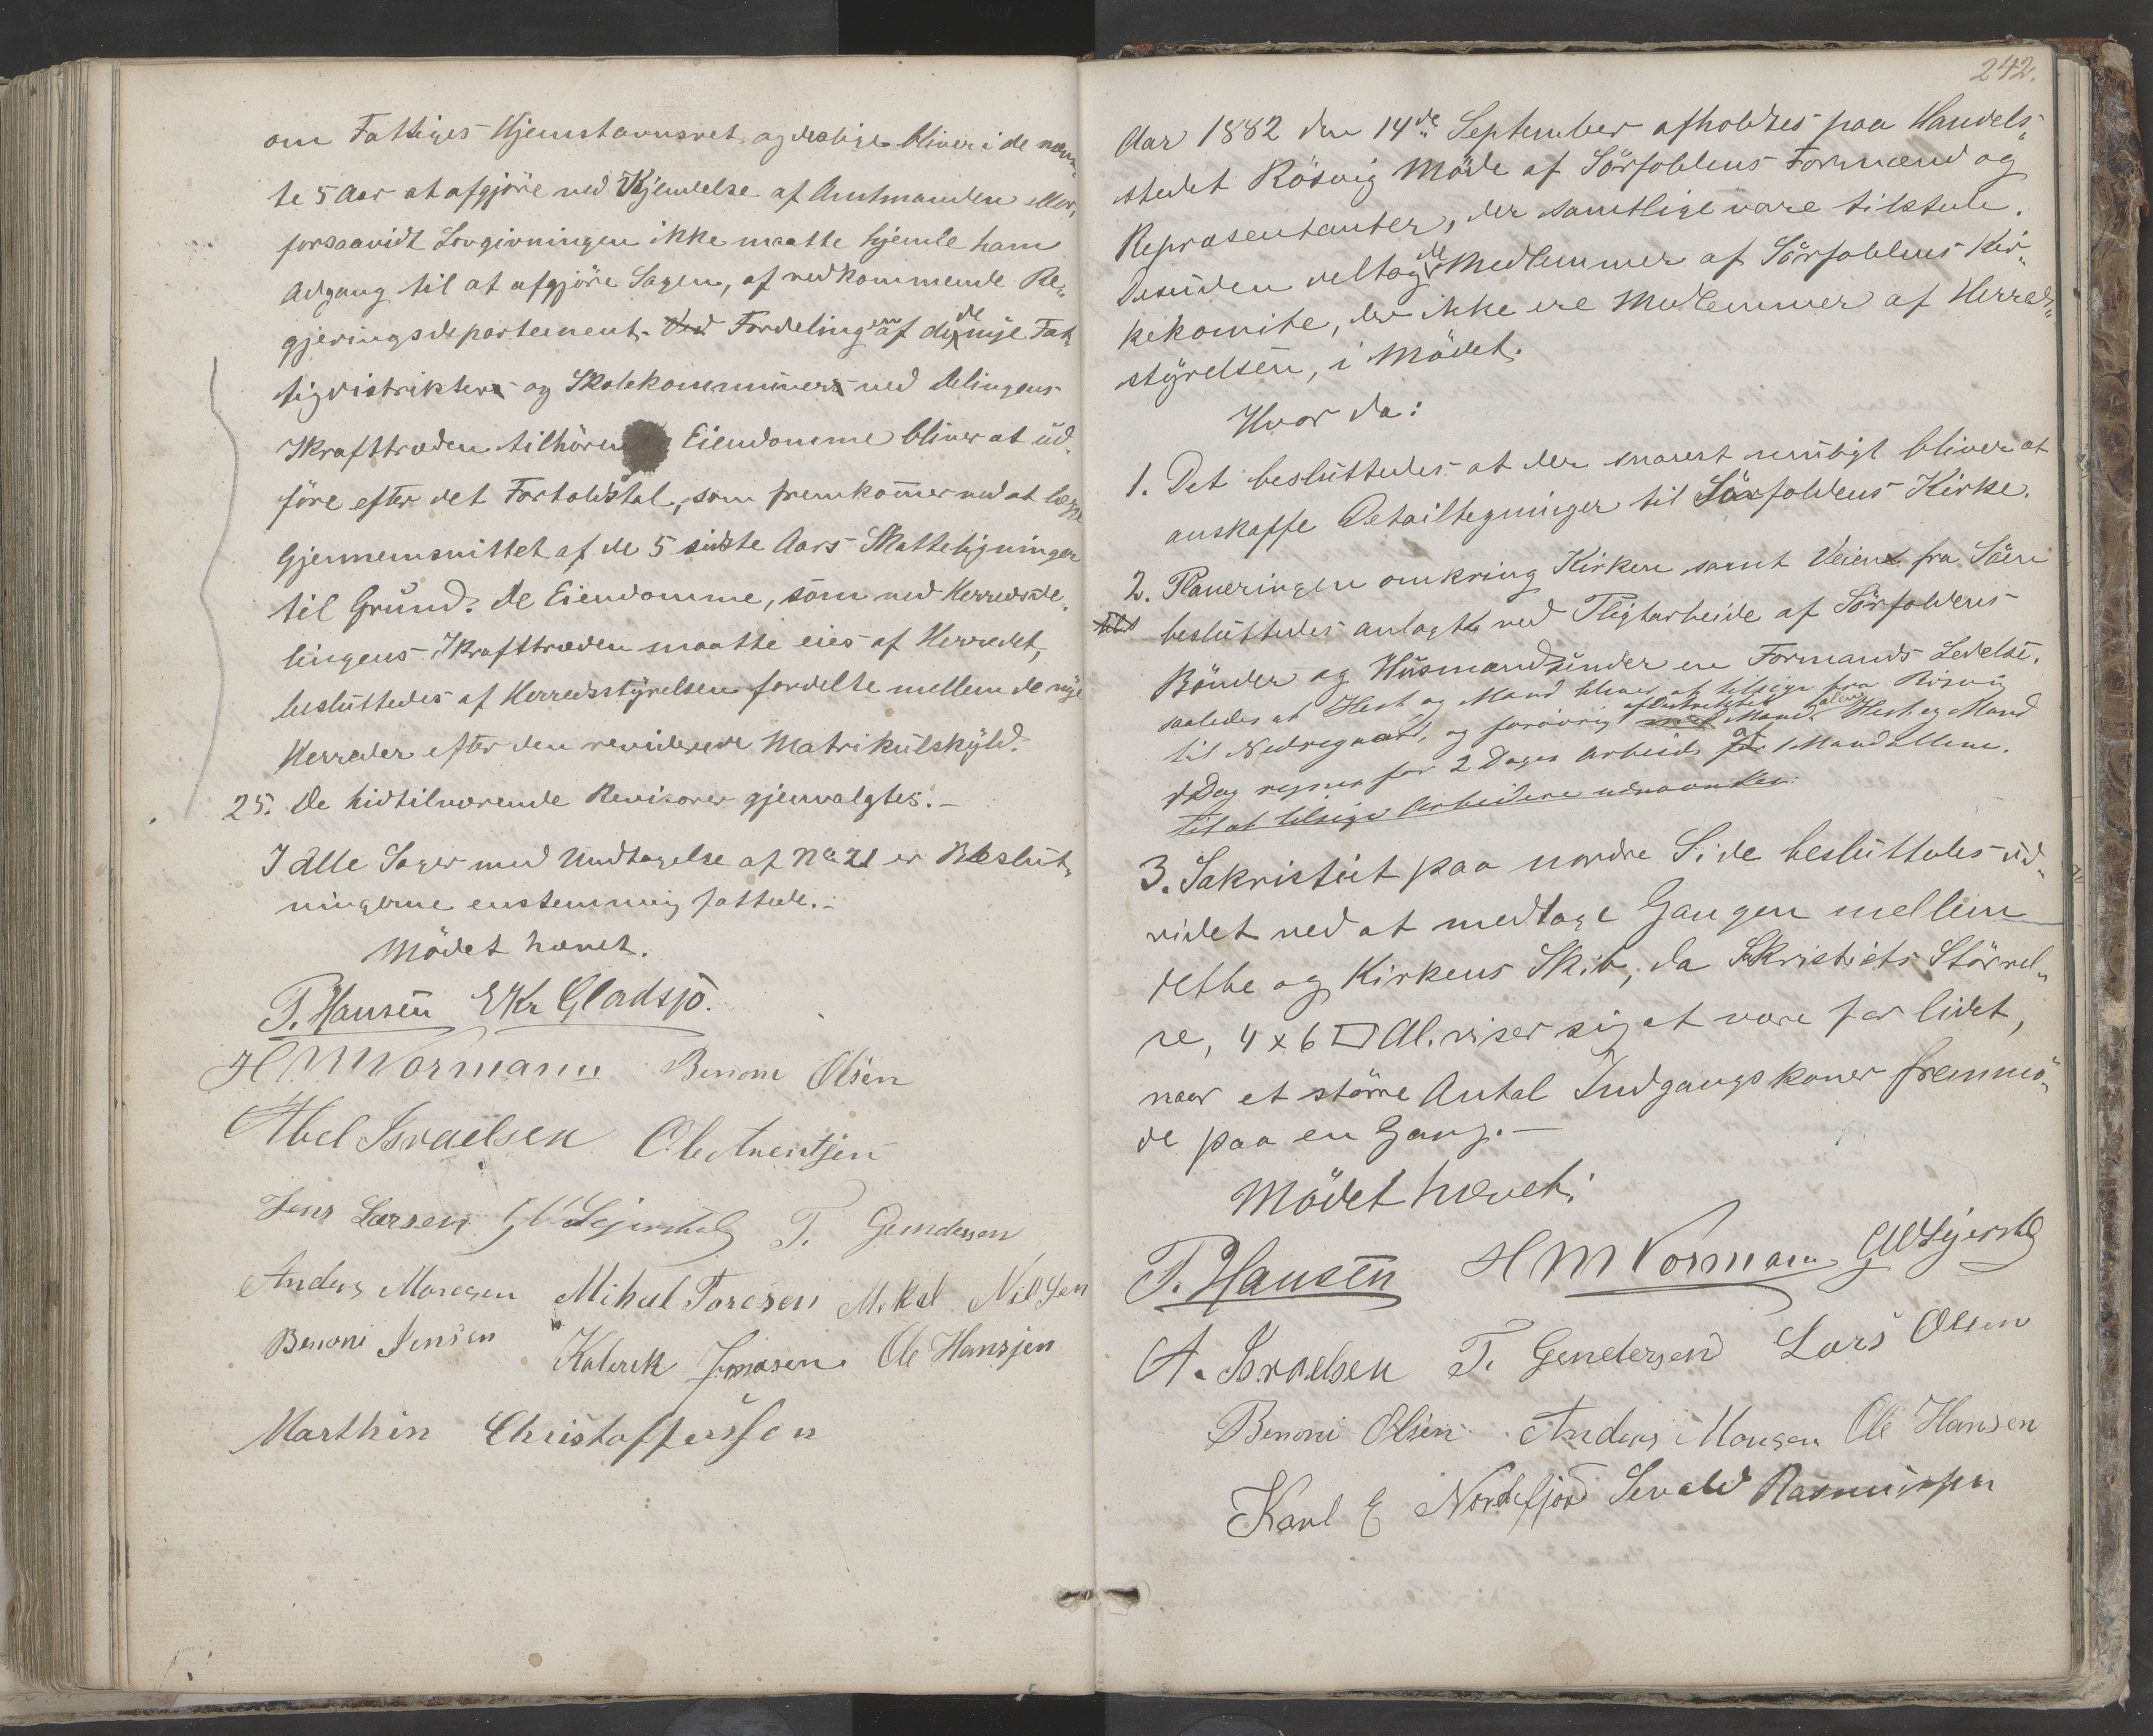 om Fattiges Hjemstavnsret og deslige bliver i de næs„
te 5 Aar at afgjöre ved Kjendelse af Amtmanden eller,
forsaavidt Lovgivningen ikke maatte hjemle ham
Adgang til at afgjöre Sagen, af vedkommende Re„
gjeringsdepartement. Ved Fordelingen af de de nye Fat„
tigdistrikter og Skolekommuner ved Delingens
Ikrafttræden tilhörende Eiendomme bliver at ud„
före efter det Forholdstal, som fremkommer ved at lægge
Gjennemsnittet af de 5 sidste Aars Skatteligninger
til Grund. De Eiendomme, som ved Herredsde„
lingens Ikrafttræden maatte eies af Herredet,
besluttedes af Herredsstyrelsen fordelte mellem de nye
Herreder efter den reviderede Matrikulskyld.
25. De hidtilværende Revisorer gjenvalgtes. –
I alle Sager med Undtagelse af No 21 er Beslut„
ningerne enstemmig fattede. –
Mödet hævet.
P. Hansen E Kr Gladsjö.
H M Normann Benoni Olsen
Abel Israelsen Ole Arentsen
Jens Larsen T. Gundersen
Anders Monsen Mihal Toresen Mikal Nilsen
Benoni Jensen Jonasen Ole Hansjen
Marthin Christofferssen
242.
Aar 1882 den 14de September afholdtes paa Handels„
stedet Rösvig Möde af Sörfoldens Formænd og
Repræsentanter, der samtlige vare tilstede.
Desuden deltog de Medlemmer af Sörfoldens Kir„
kekomite, der ikke ere Medlemmer af Herreds„
styrelsen, i Mödet.
Hvor da:
1. Det besluttedes at der snarest muligt bliver at
anskaffe Detailtegninger til Sörfoldens Kirke.
2. Planeringen omkring Kirken samt Veien fra Söen
besluttedes anlagt ved Pligtarbeide af Sörfoldens
Bönder og Husmænd under en Formands Ledelse.
saaledes at Hest og Mand bliver at tilsige fra Rösvig
til Nedregaard, og forövrig af Distriktet Mand. Hest og Mand
1 Dag regnes for 2 Dages Arbeide af 1 Mand allene.
til at tilsige Arbeidere udnævntes
3. Sakristiet paa nordre Side besluttedes ud„
videt ved at medtage Gangen mellem
dette og Kirkens Skib, da Skristiets Störrel„
se, 4 x 6 □ Al. viser sig at være for lidet,
naar et större Antal Indgangskoner fremmö„
de paa en Gang. –
Mödet hævet.
P. Hansen H M Normann
A. Israelsen T. Gundersen Lars Olsen
Benoni Olsen Anders Monsen Ole Hansen
Karl E Nordfjord Sevald Rasmussen